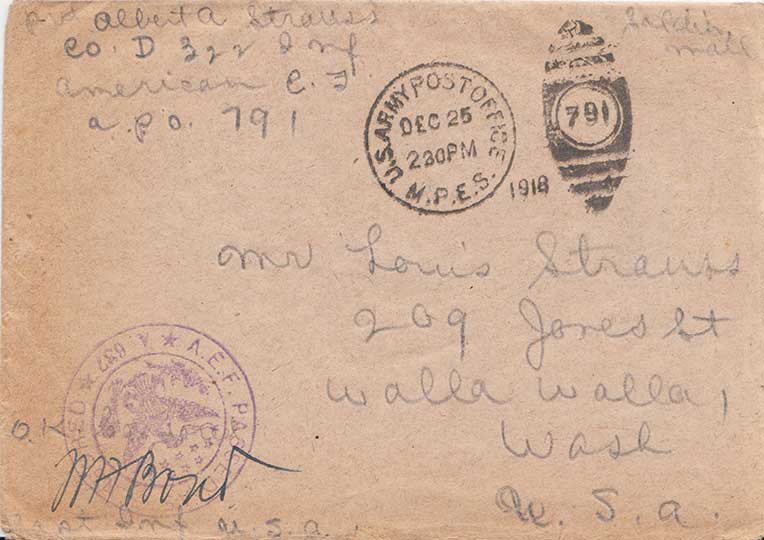 Pvt Albert A Strauss
Co. D 322 Inf
American E. F.
a.p.o. 791
Soldier's
mail
U.S. ARMY POST OFFICE
DEC 25
230PM
M.P.E.S.
1918
791
Mr Louis Strauss
209 Jones St
Walla Walla,
Wash
U. S. a.
A.E.F. PASSED
A.637
O.K.
Capt Inf U.S.a.